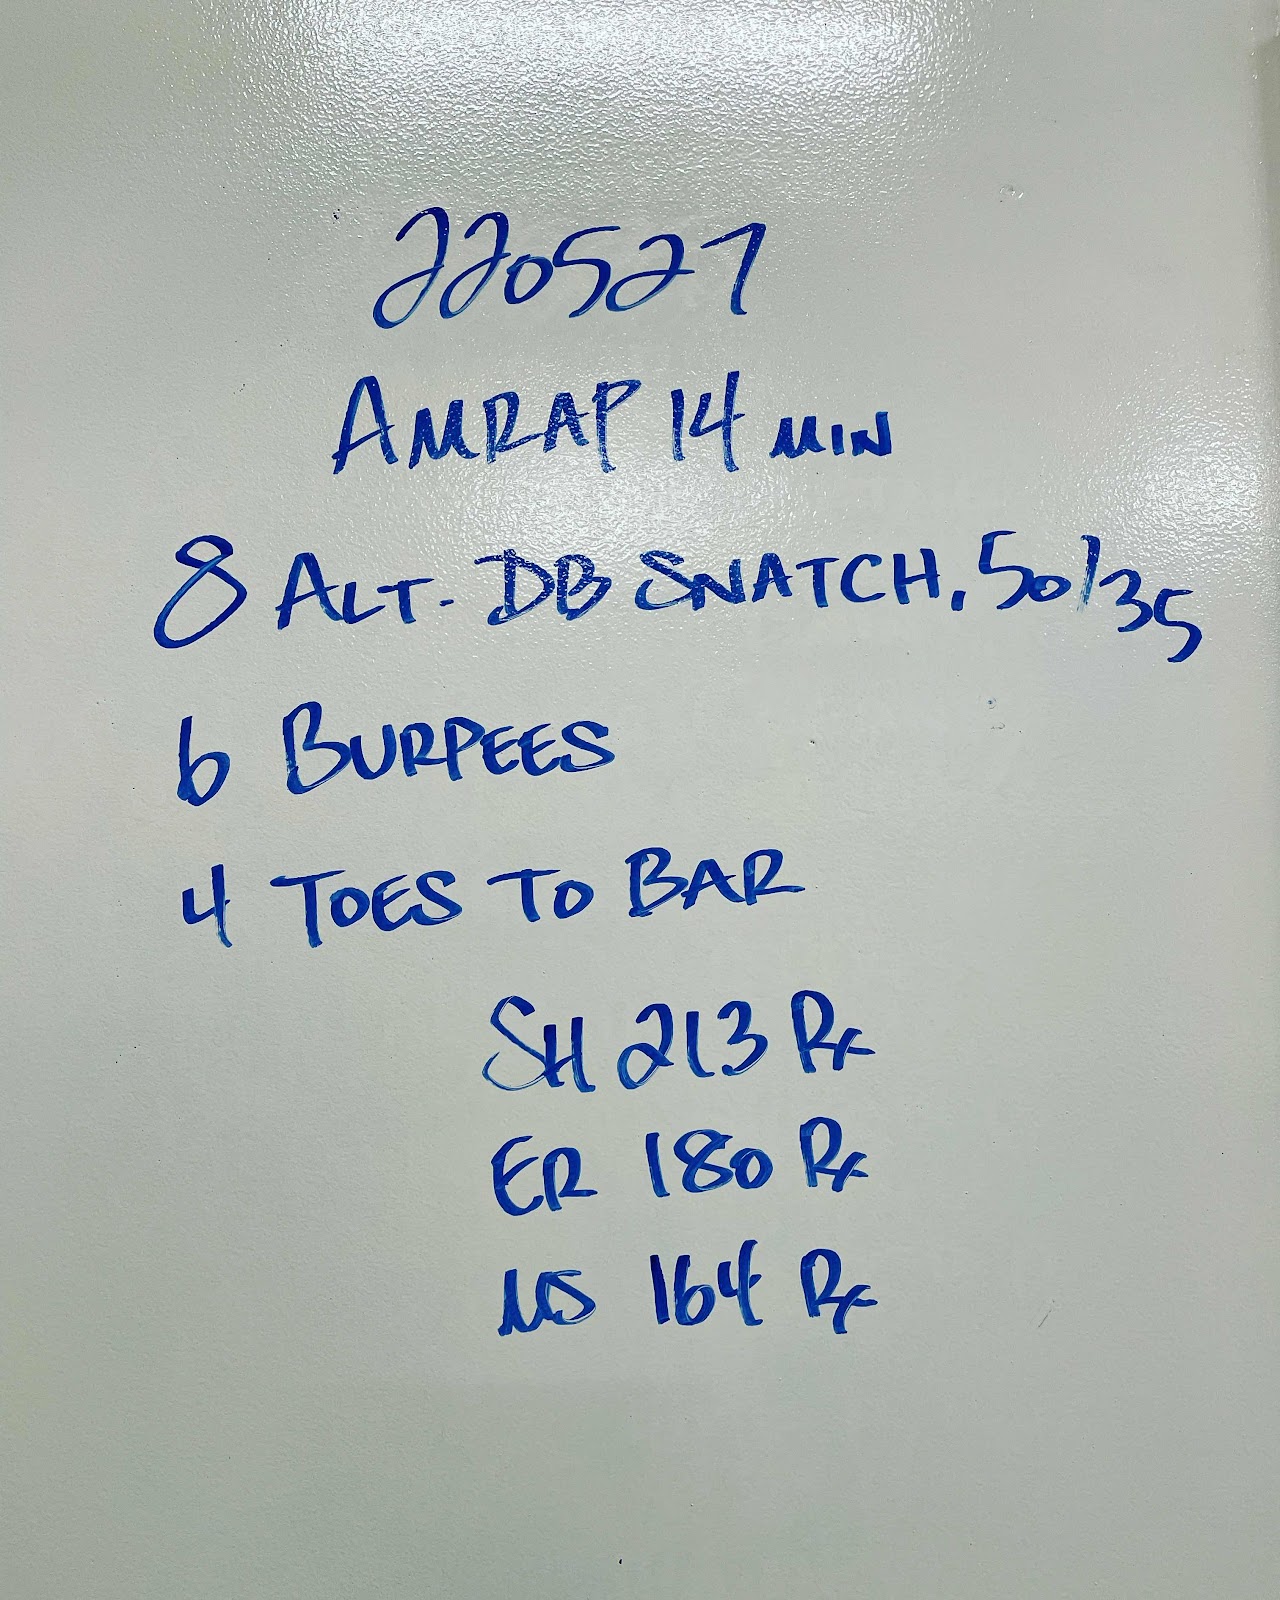 220527
AMRAP 14 MIN
8 ALT. DB SNATCH, 50/35
6 BURPEES
4 TOES TO BAR
SH 213 Rx
ER 180 Rx
NS 164 Rx